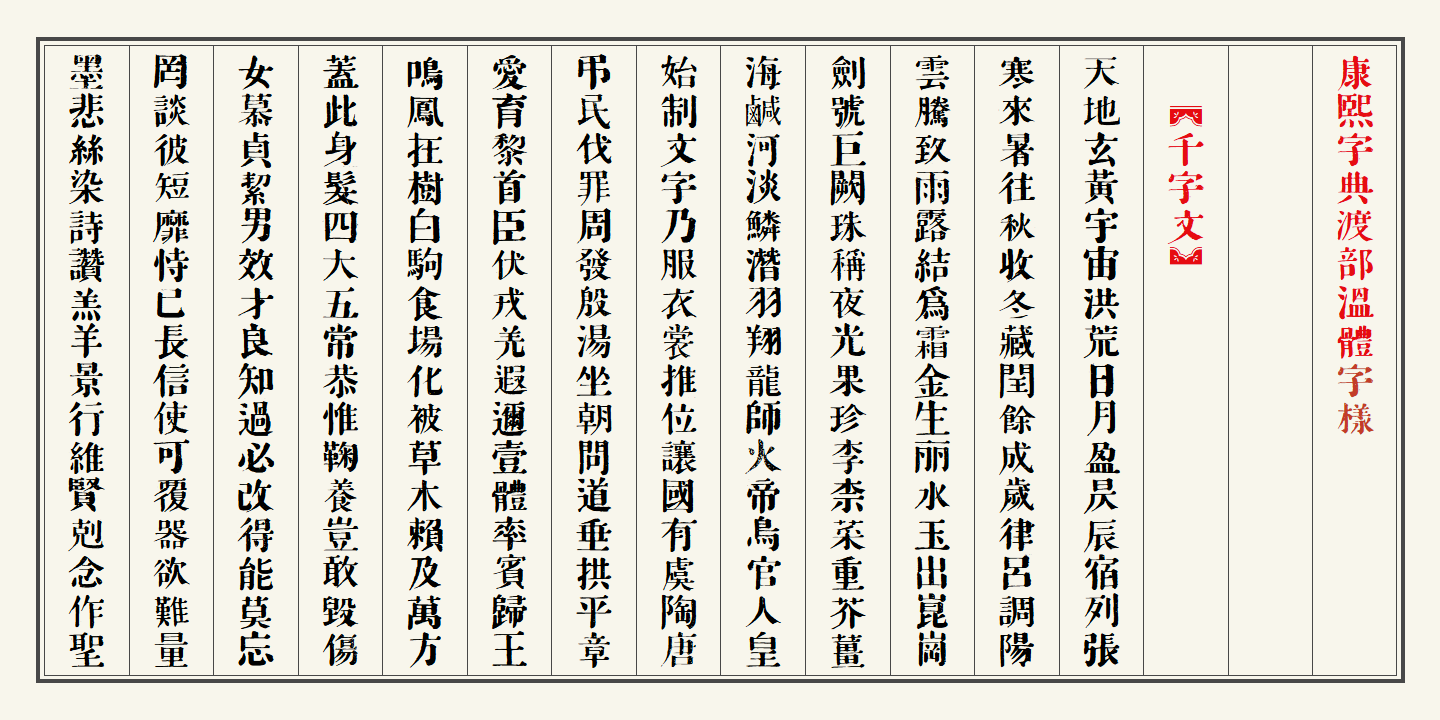 康熙字典渡部溫體字樣
【千字文】
天地玄黃宇宙洪荒日月盈昃辰宿列張
寒來暑往秋收冬藏閏餘成歲律呂調陽
雲騰致雨露結爲霜金生丽水玉出崑崗
劍號巨闕珠稱夜光果珍李柰菜重芥薑
海鹹河淡鱗潛羽翔龍師火帝鳥官人皇
始制文字乃服衣裳推位讓國有虞陶唐
弔民伐罪周發殷湯坐朝問道垂拱平章
愛育黎首臣伏戎羌遐邇壹體率賓歸王
鳴鳳在樹白駒食場化被草木賴及萬方
蓋此身髮四大五常恭惟鞠養豈敢毀傷
女慕貞絜男效才良知過必改得能莫忘
罔談彼短靡恃己長信使可覆器欲難量
墨悲絲染詩讚羔羊景行維賢剋念作聖